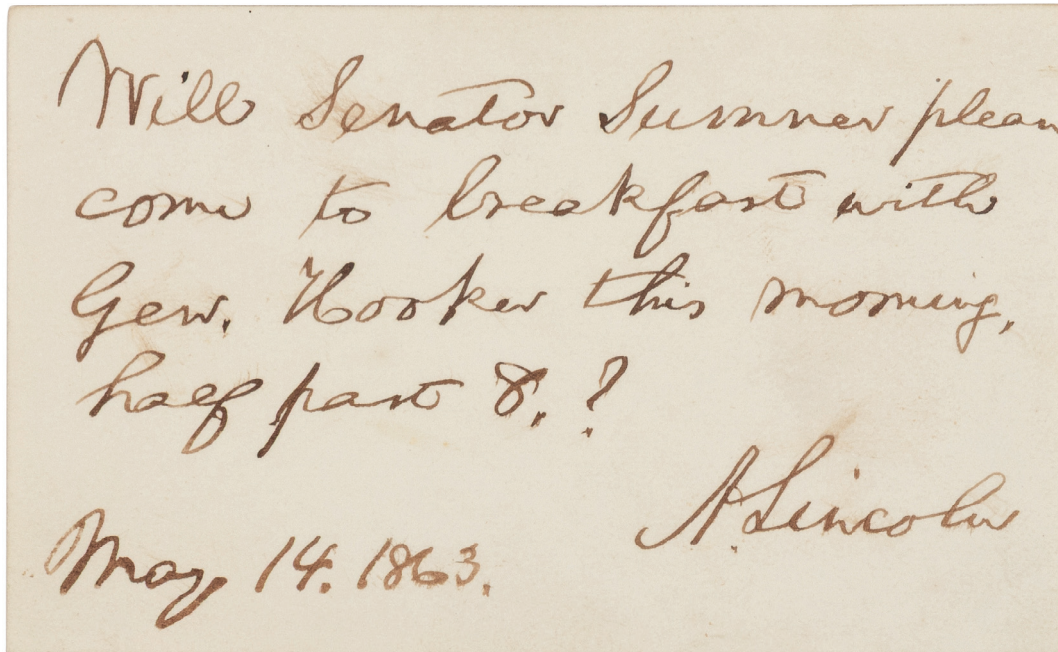 Will Senator Sumner pleas
come to breakfast with
Gen. Hooker this morning,
half past 8.?
A. Lincoln
May 14. 1863.